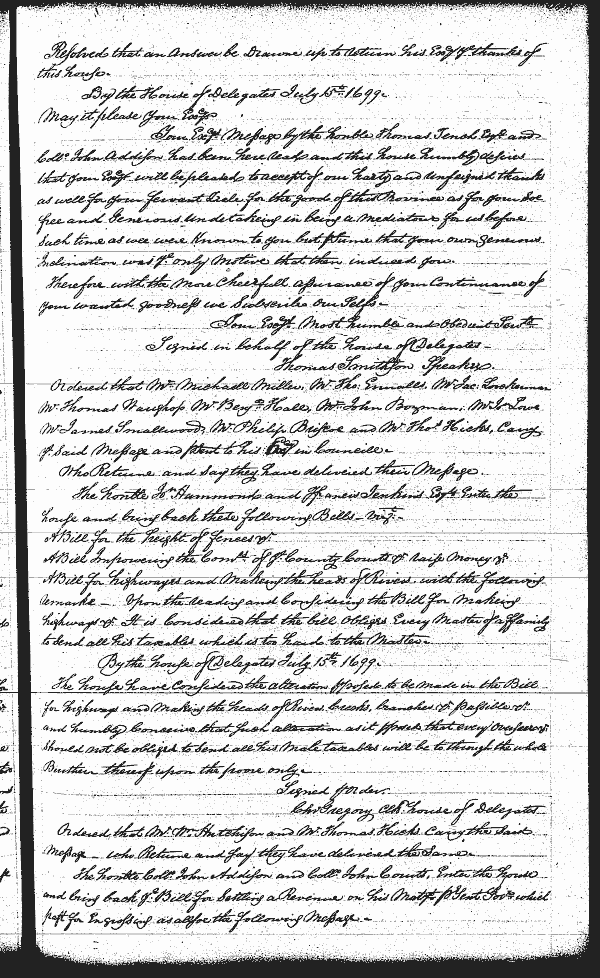 Resolved that an Answer be Drawne up to return his Exc̃y yͤ thanks of
this house.
By the House of Delegates July 15th. 1699.
May it please your Exc̃y
Your Exc̃ys Message by the honble Thomas Tench Esqr. and
Coll. John Addison has been here read and this house humbly desires
that your Exc̃y will be pleased to accept of our harty and unfeigned thanks
as well for your fervent Zeale for the good of this Province as for your Soe
free and Generous undertakeing in being a Mediatour for us before
Such time as wee were Known to you but that your own generous
Inclination was yͤ only Motive that then induced you.
Therefore with the More Cheerfull assurance of your Continuance of
your wanted goodness we Subscribe our Selfs
Your Exc̃ys. Most humble and Obedient Servts
Signed in behalf of the house of Delegates
Thomas Smithson Speaker.
Ordered that Mr. Michaell Miller, Mr. Tho. Ennalls, Mr. Jac. Lookerman
Mr Thomas Waughop Mr Benjn Hall, Mr. John Bozman, Mr Jo Lowe
Mr James Smallwood, Mr Philip Briscoe and Mr Thos Hicks, Carry
yͤ Said Message and it to his Exc̃y in Councill.
Who Returne and Say they have delivered their Message.
The honble Jno Hammond and Francis Jenkins Esqrs Enter the
house and bring back these following Bills Vizt.
A Bill for the height of Fences &c.
A Bill Impowering the Comrs. of yͤ County Courts to raise Money &c
A Bill for highwayes and Makeing the heads of Rivers with the following
remarke. Upon the reading and Considering the Bill for Makeing
highways &c. It is Considered that the bill Obliges Every Master of a ffamily
to send all his taxables which is too hard to the Master
By the house of Delegates July 15th. 1699.
The house have Considered the alteration pposed to be made in the Bill
for highways and Making the heads of Rivers Creeks, branches & passible &c.
and humbly Conceive that Such alteration as it pposes that every Overseer
Should not be obliged to Send all his Male taxables will be to through the whole
Burthen thereof upon the poore only.
Signed p Order.
Chr Gregory Clk house of Delegates
Ordered that Mr. Wm. Hutchison and Mr. Thomas Hicks Carry the Said
Message who Returne and Say they have delivered the Same.
The honble Coll. John Addison and Coll. John Courts, Enter the house
and bring back yͤ Bill for Settling a Revenue on his Matys Govr which
past for Engrossing as also the following Message.